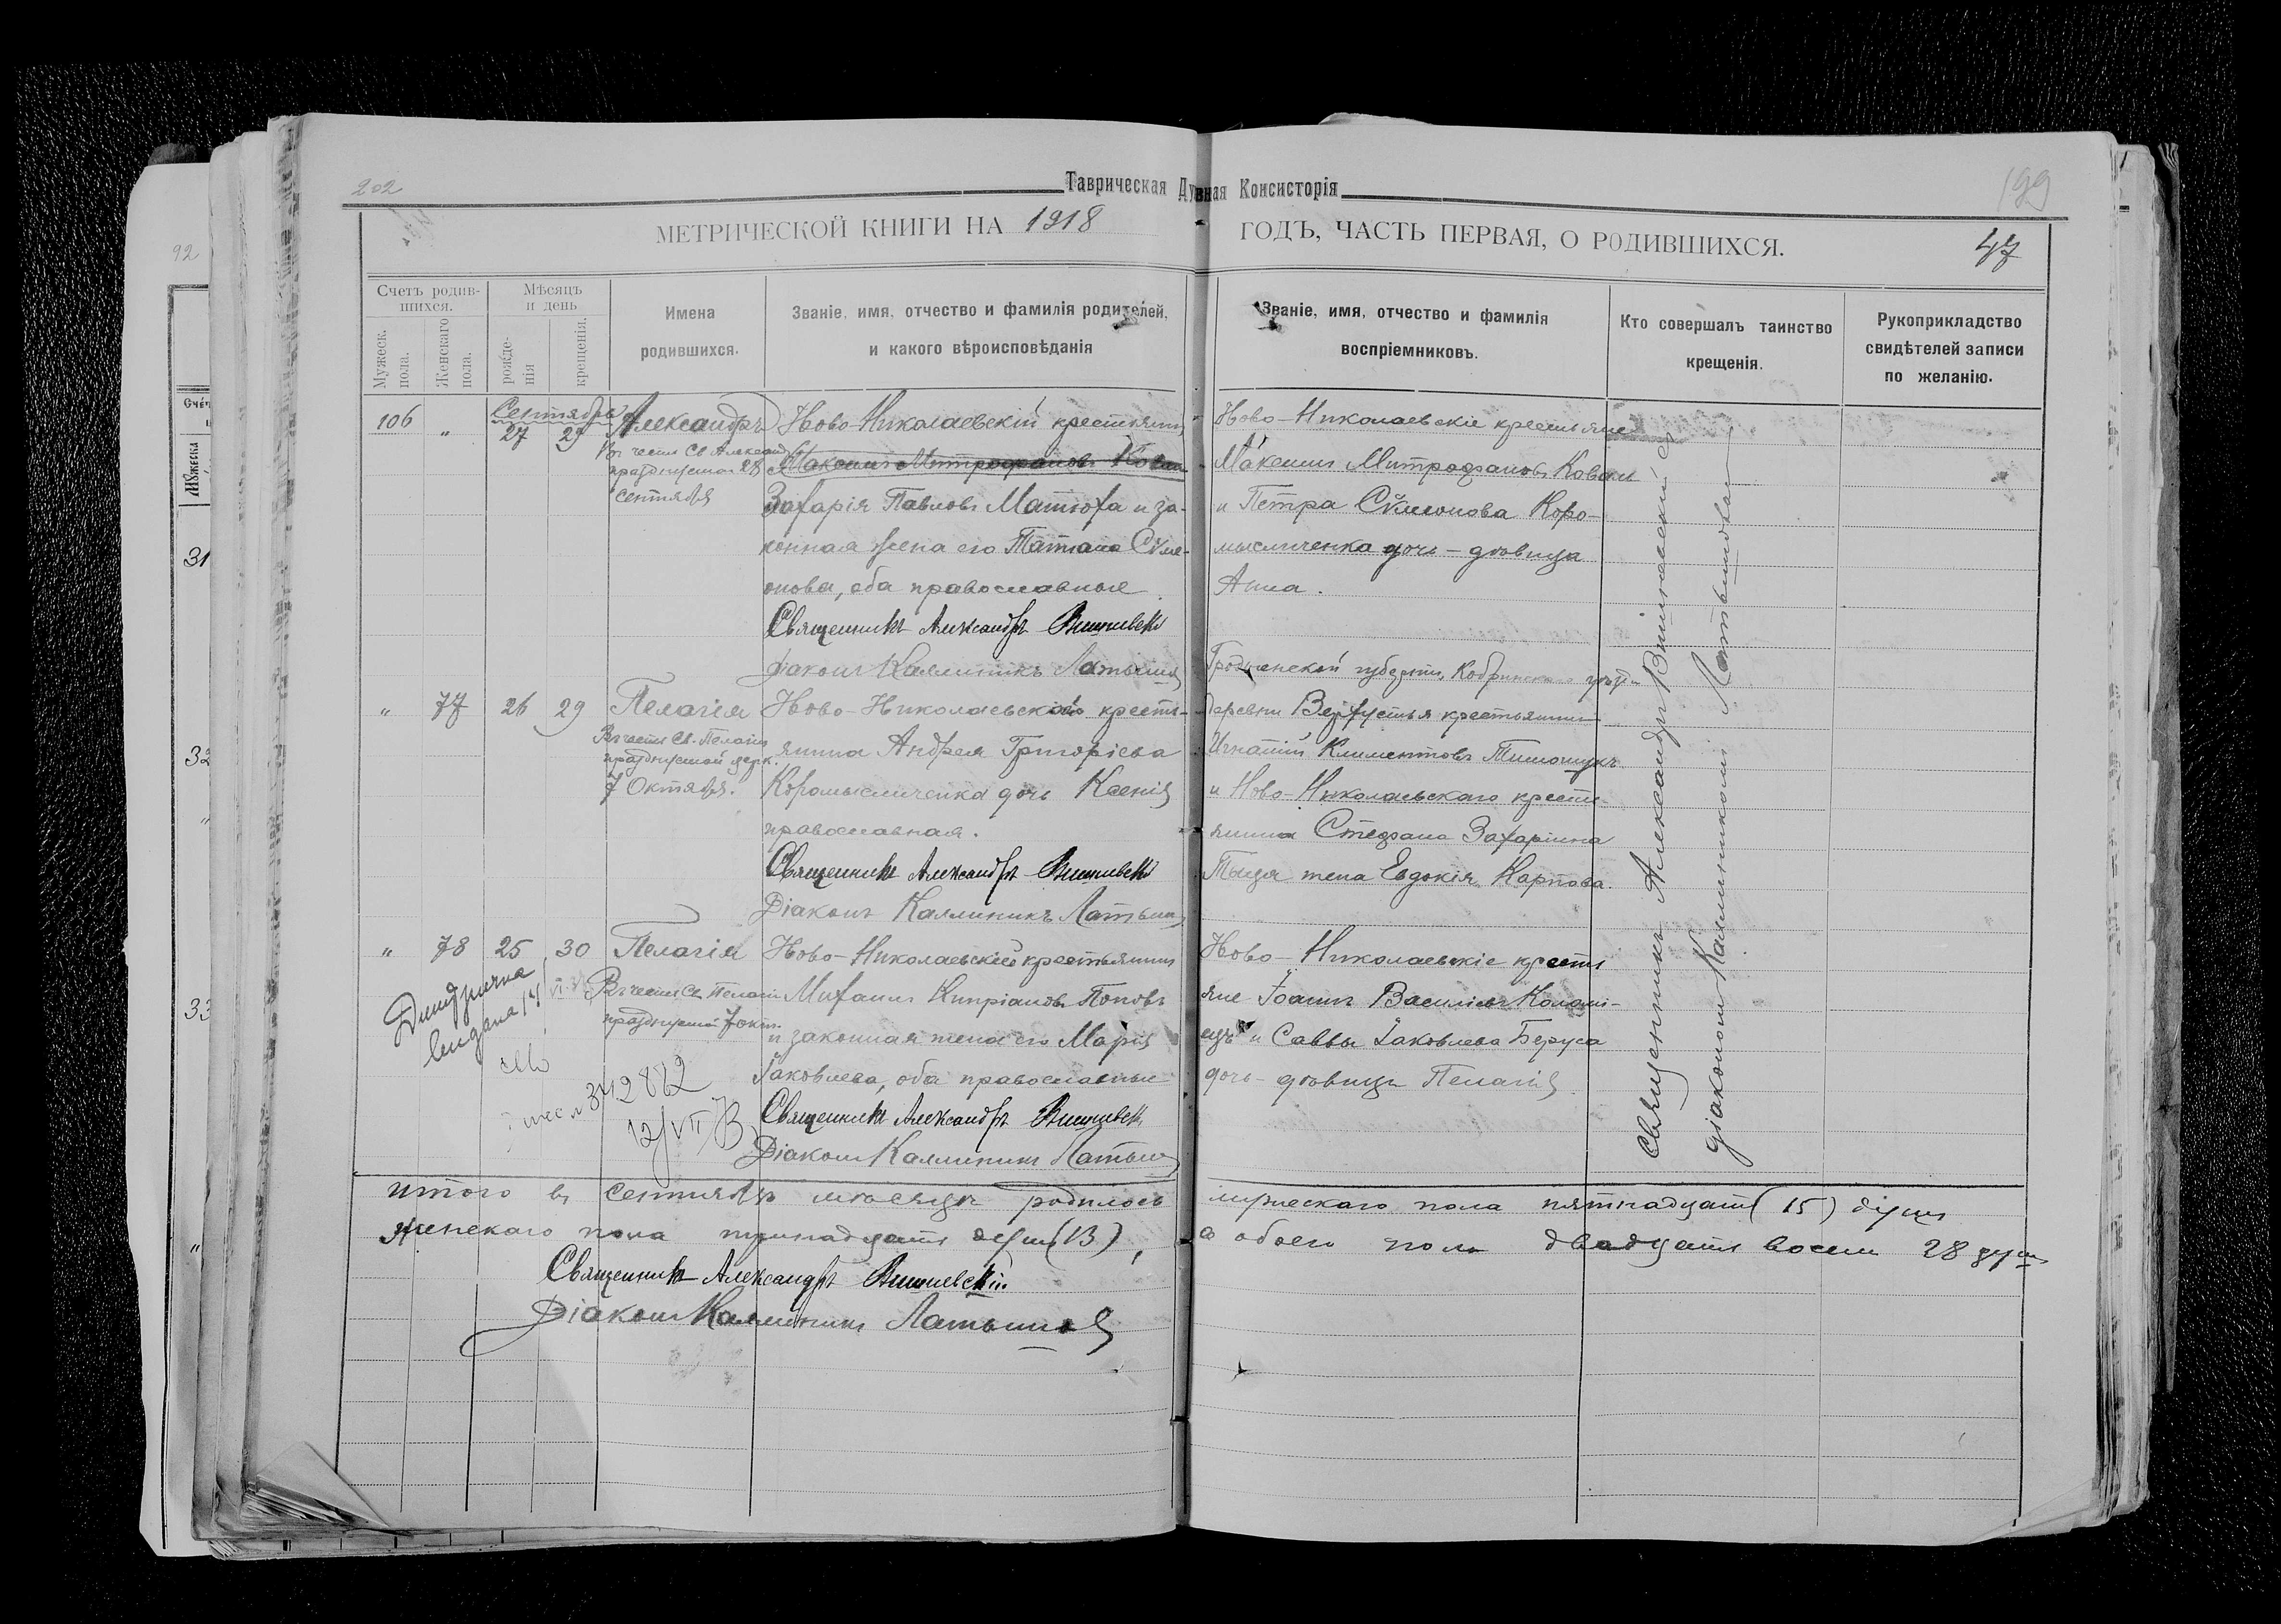 202
Таврическая Духовная Консисторія
199
МЕТРИЧЕСКОЙ КНИГИ НА 1918
ГОДЪ, ЧАСТЬ ПЕРВАЯ, О РОДИВШИХСЯ.
47
92
Счетъ родившихся.
Мужеск. пола.
Женскаго пола.
Мѣсяцъ и день
рожденія
крещенія.
Имена родившихся.
Званіе, имя, отчество и фамилія родителей, и какого вѣроисповѣданія
Званіе, имя, отчество и фамилія воспріемниковъ.
Кто совершалъ таинство крещенія.
Рукоприкладство свидѣтелей записи по желанію.
31
32
33
106 „ Сентябрь 27 29
Александръ
Въ честь Св Александ
празднуемаго 28
сентября
Ново-Николаевскій крестьянинъ
Максимъ Митрофановъ Коваль
Захарія Павловъ Матюха и за-
конная жена его Татіана Сѵме-
онова, оба православные
Священникъ Александръ Вишневскій
Діаконъ Каллиникъ Латышев
Ново-Николаевскіе крестьяне
Максимъ Митрофановъ Коваль
и Петра Сѵмеонова Коро-
мысличенка дочь - дѣвица
Анна.
„ 77 26 29
Пелагія
Въ честь Св. Пелагіи
празднуемой церк.
7 Октября.
Ново-Николаевскаго кресть-
янина Андрея Григоріева
Коромысличенка дочь Ксенія
православная.
Священникъ Александръ Вишневскій
Діаконъ Каллиникъ Латышев
Гродненской губерніи, Кобринскаго уѣзда
деревни Верхустья крестьянинъ
Игнатій Климентовъ Тимощукъ
и Ново-Николаевскаго кресть-
янина Стефана Захаріина
жена Евдокія Карпова.
„ 78 25 30
Пелагія
Въ честь Св. Пелагіи
празднуемой 7 окт.
Ново-Николаевскій крестьянинъ
Кипріановъ Поповъ
и законная жена его Марія
Іаковлева, оба православные
Священникъ Александръ Вишневскій
Діаконъ Каллиникъ Латышев
Ново-Николаевскіе кресть
яне Іоаннъ Василіевъ Коломі-
ецъ и Саввы Іаковлева Беруса
дочь - дѣвица Пелагія
12/VII
Священникъ Александръ Вишневскій съ
діакономъ Каллиникомъ Латышевымъ
итого въ Сентябрѣ мѣсяцѣ родилось
мужескаго пола пятнадцать (15) душъ
женскаго пола тринадцать душ (13),
а обоего пола двадцать восемь 28 душъ
Священникъ Александръ Вишневскій.
Діаконъ Каллиникъ Латышев